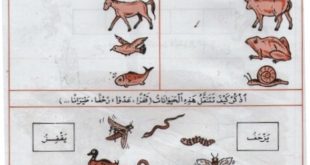 أذكر كيف تتنقل هذه الحيوانات ( قفزا ، عدوا ، زحفا ، طيرانا ... )
يزحف
يقفز